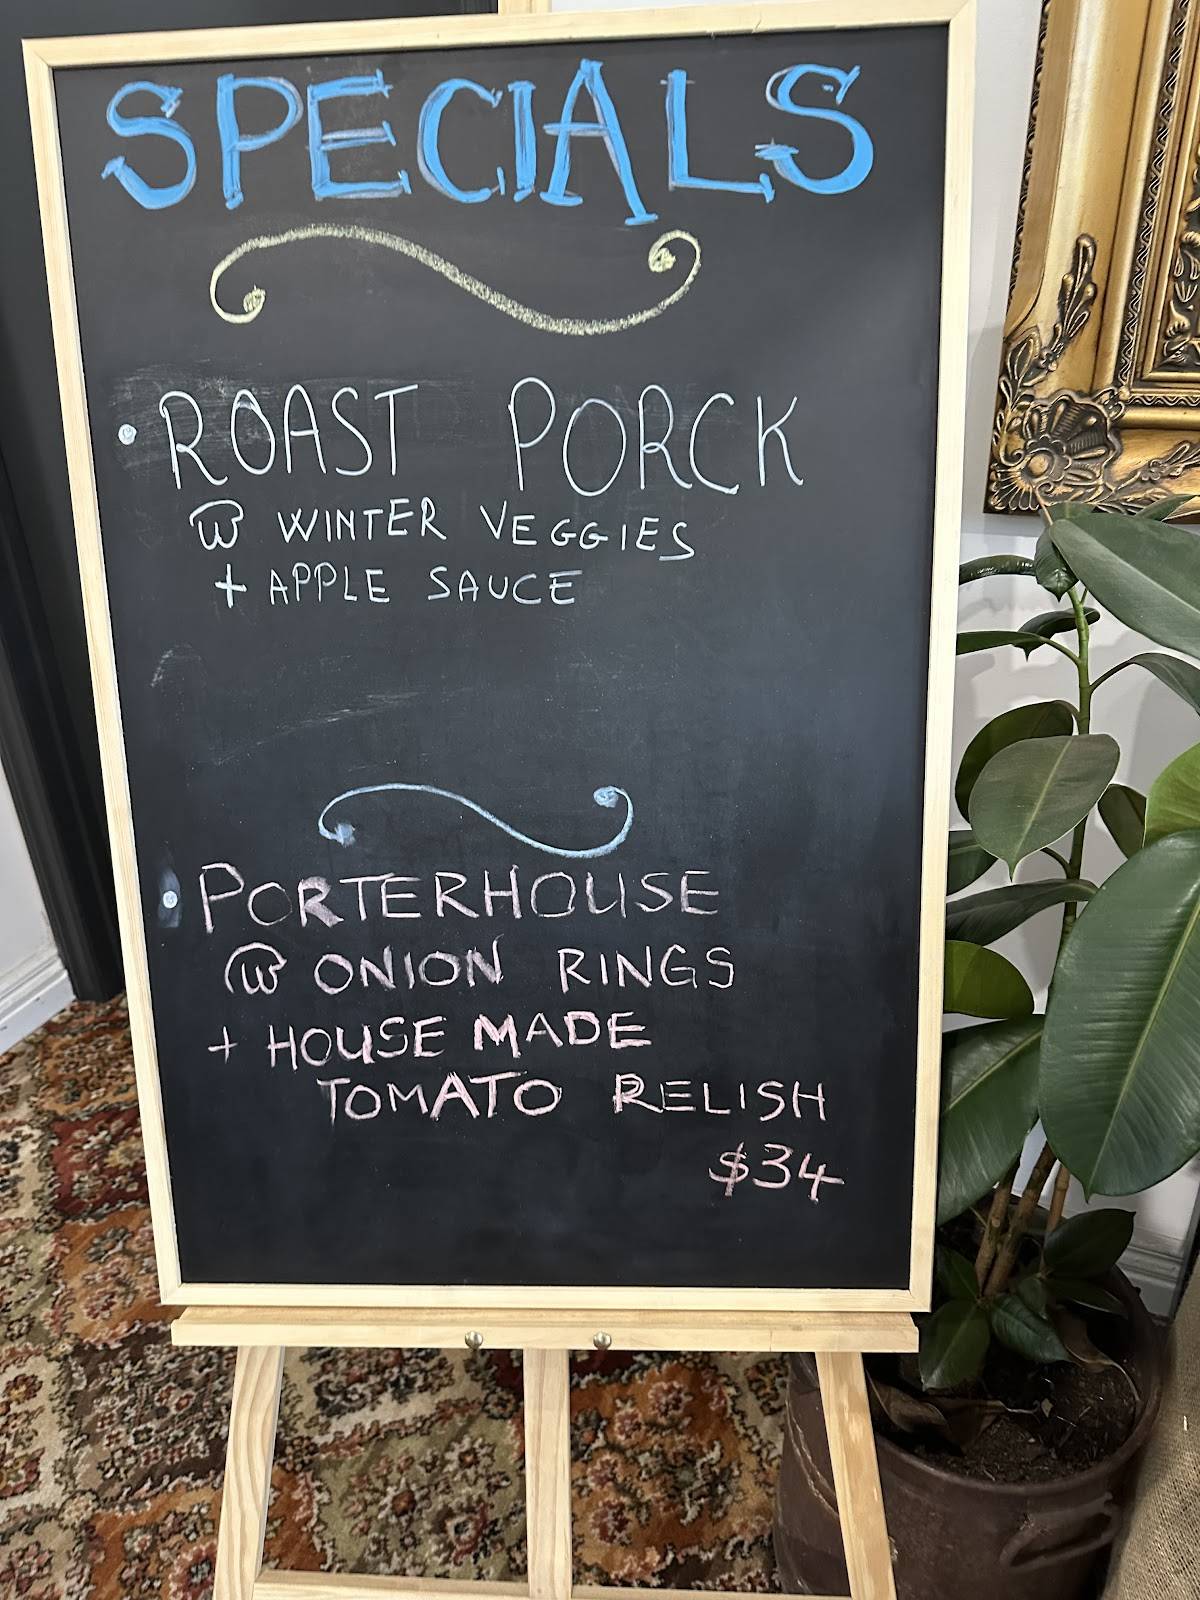 SPECIALS
• ROAST PORCK
W WINTER VEGGIES
+ APPLE SAUCE
• PORTERHOUSE
W ONION RINGS
+ HOUSE MADE
TOMATO RELISH
$34